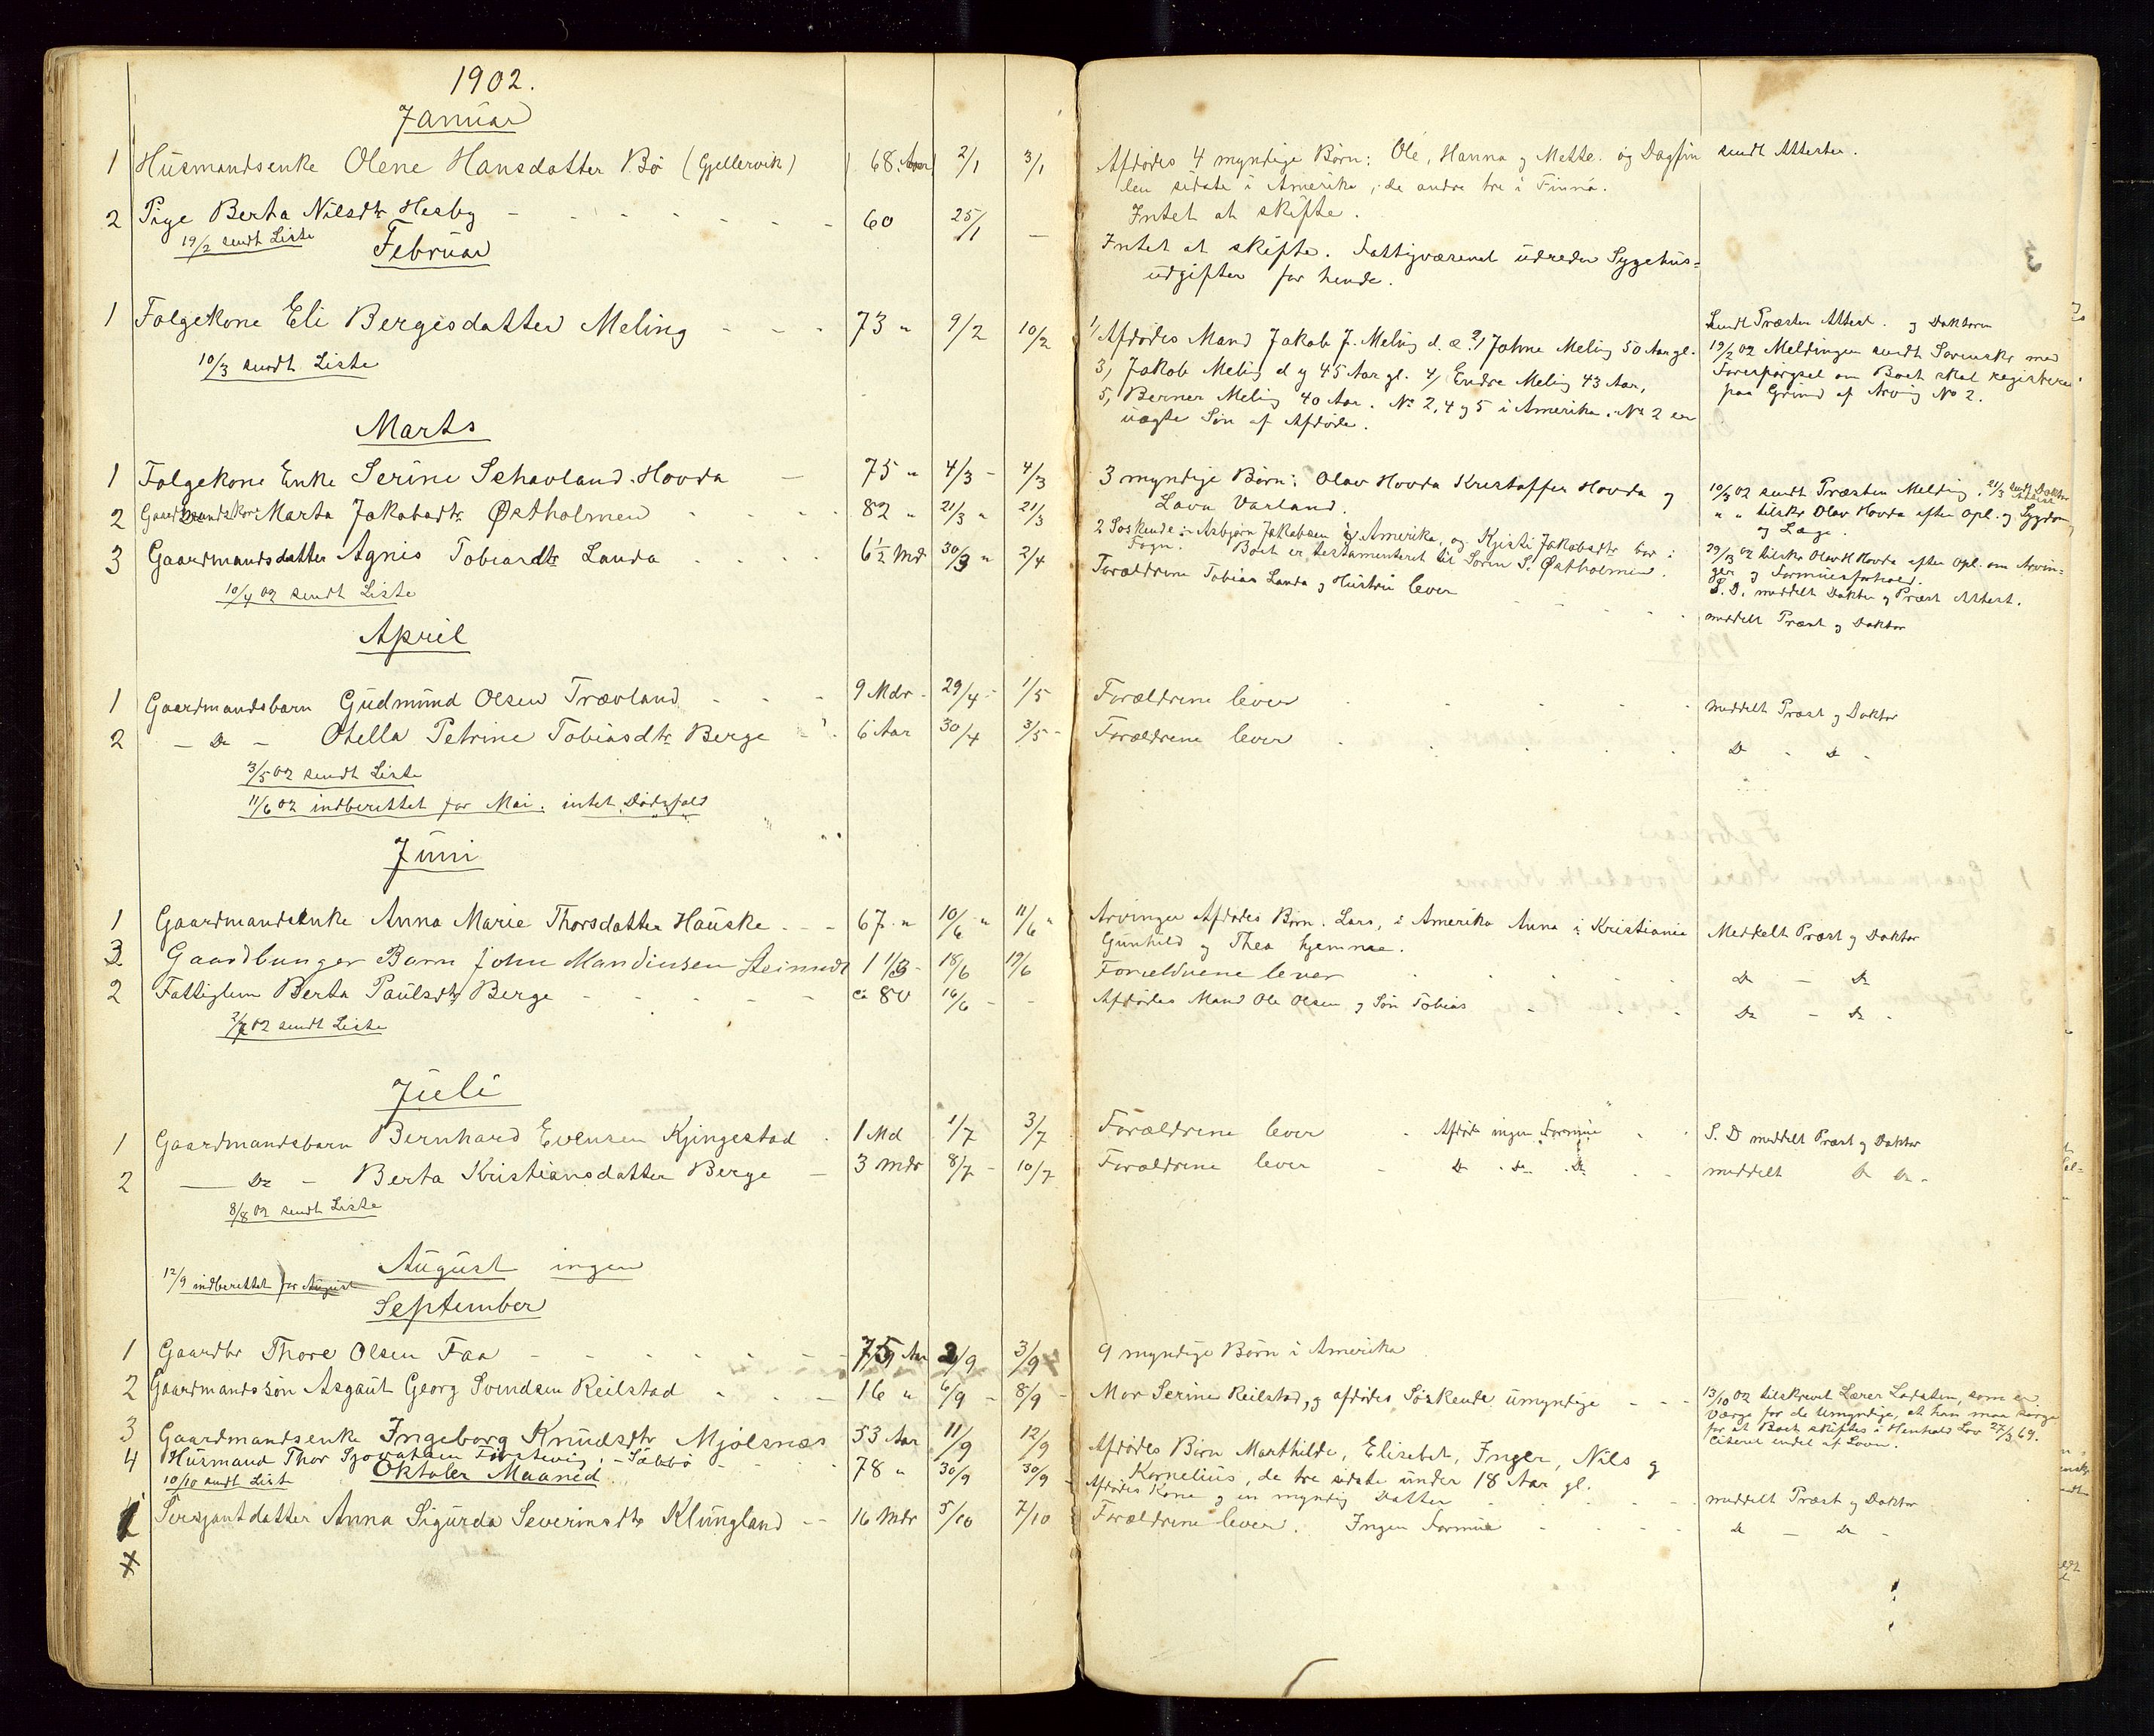 1902.
Januar
1 Husmandsenke Olene Hansdatter Bö (Gjellervik) 68 Aar 2/1 3/1
2 Pige Berta Nilsdtr Hesby - - - - - 60 25/1 —
19/2 sendt Liste
Februar
1 Folgekone Eli Bergesdatter Meling - - - 73 " 9/2 10/2
10/3 sendt Liste
Marts
1 Folgekone Enke Serine Schavland. Hovda — 75 " 4/3 - 4/3
2 Gaardmandskone Marta Jakobsdtr Østholmen - - - 82 " 21/3 " 21/3
3 Gaardmandsdatter Agnis Tobiasdtr Landa - - - 6½ Mdr 30/3 " 2/4
10/4 02 sendt Liste
April
1 Gaardmandsbarn Gudmund Olsen Trævland - - - 9 Mdr - 29/4 - 1/5
2 — Do — Otella Petrine Tobiasdtr Berge - 6 Aar 30/4 3/5 -
3/5 02 sendt Liste
11/6 02 indberettet for Mai. intet Dödsfald
Juni
1 Gaardmandsenke Anna Marie Thorsdatter Hauske - - - 67 " 10/6 " 11/6 "
3 Gaardbruger Barn John Mandiusen 1 1/3 - 18/6 19/6
2 Fattiglem Berta Paulsdtr Berge - - - - - ca 80 16/6 - -
2/7 02 sendt Liste
Juli
1 Gaardmandsbarn Bernhard Evensen Kjingestad - 1 Md 1/7 3/7
2 — Do — Berta Kristiansdatter Berge — 3 Mdr 8/7 - 10/7
8/8 02 sendt Liste
August ingen
12/9 indberettet for August
September
1 Gaardbr Thore Olsen Faa - - - - - 75 Aar 2/9 3/9
2 Gaardmandssön Asgaut Georg Svendsen Reilstad - - - 16 " 6/9 - 8/9 -
3 Gaardmandsenke Ingeborg Knudsdtr Mjölsnæs 53 Aar 11/9 12/9
4 Husmand Thor - Söbbö - - 78 " 30/9 30/9
10/10 sendt List Oktober Maaned
1 Sersjantdatter Anna Sigurda Severinsdtr Klungland - - 16 Mdr 5/10 7/10
Afdödes 4 myndige Börn: Ole, Hanna og Mette. og Dagfin
den sidste i Amerika, de andre tre i Finnö.
Intet at skifte.
Intet at skifte. Fattigvæsenet udreder Sygehus=
udgifter for hende.
1/ Afdödes Mand Jakob J. Meling d. æ. 2/ Johne Meling 50 Aar gl.
3, Jakob Meling d y 45 Aar gl. 4, Endre Meling 43 Aar,
5, Berner Meling 40 Aar. No 2, 4 og 5 i Amerika. No 2 er
uægte Sön af Afdöde.
3 myndige Börn: Olav Hovda Kristoffer Hovda og
Lava Varland.
2 Söskende: Asbjörn Jakobsen i Amerika, og Kjisti Jakobsdtr bor i
Fogn. Boet er testamenteret til Sören S. Østholmen.
Forældrene Tobias Landa og Hustru lever
Forældrene lever
Forældrene lever
Arvinger Afdödes Börn. Lars, i Amerika Anna i Kristiania
Gunhild og Thea hjemme.
Forældrene lever
Afdödes Mand Ole Olsen og Sön Tobias
Forældrene lever - Afdöde ingen Formue
Forældrene lever - Do - Do - Do
9 myndige Börn i Amerika
Mor Serine Reilstad, og afdödes Söskende umyndige - - -
Afdödes Börn Marthilde, Elisebet, Inger, Nils og
Kornelius, de tre sidste under 18 Aar gl.
Afdödes Kone og en myndig Datter
Forældrene lever. Ingen Formue
sendt Attester.
Sendt Præsten Attest. og Doktoren
19/2 02 Meldingen sendt Sorenskr med
Forespörgsel om Boet skal registeres
paa Grund af Arving No 2.
10/3 02 sendt Præsten Melding. 21/3 sendt Doktor Attest
" " tilskr Olav Hovda efter Opl. og Sygdom
og Læge.
29/3 02 tilskr Olav H Hovda efter Opl. om Arvin=
ger og Formuesforhold.
S. D. meddelt Doktor og Præst Attest.
meddelt Præst og Doktor
meddelt Præst og Doktor
Do - Do -
Meddelt Præst og Doktor
Do — Do
Do — Do -
S. D meddelt Præst og Doktor
meddelt Do Do -
13/10 02 tilskrevet Lærer Ladstein, som er
Værge for de Umyndige, at han maa sörge
for at Boet skiftes i Henhold Lov 27/3 69.
Citeret endel af Loven.
meddelt Præst og Doktor
Do — Do -